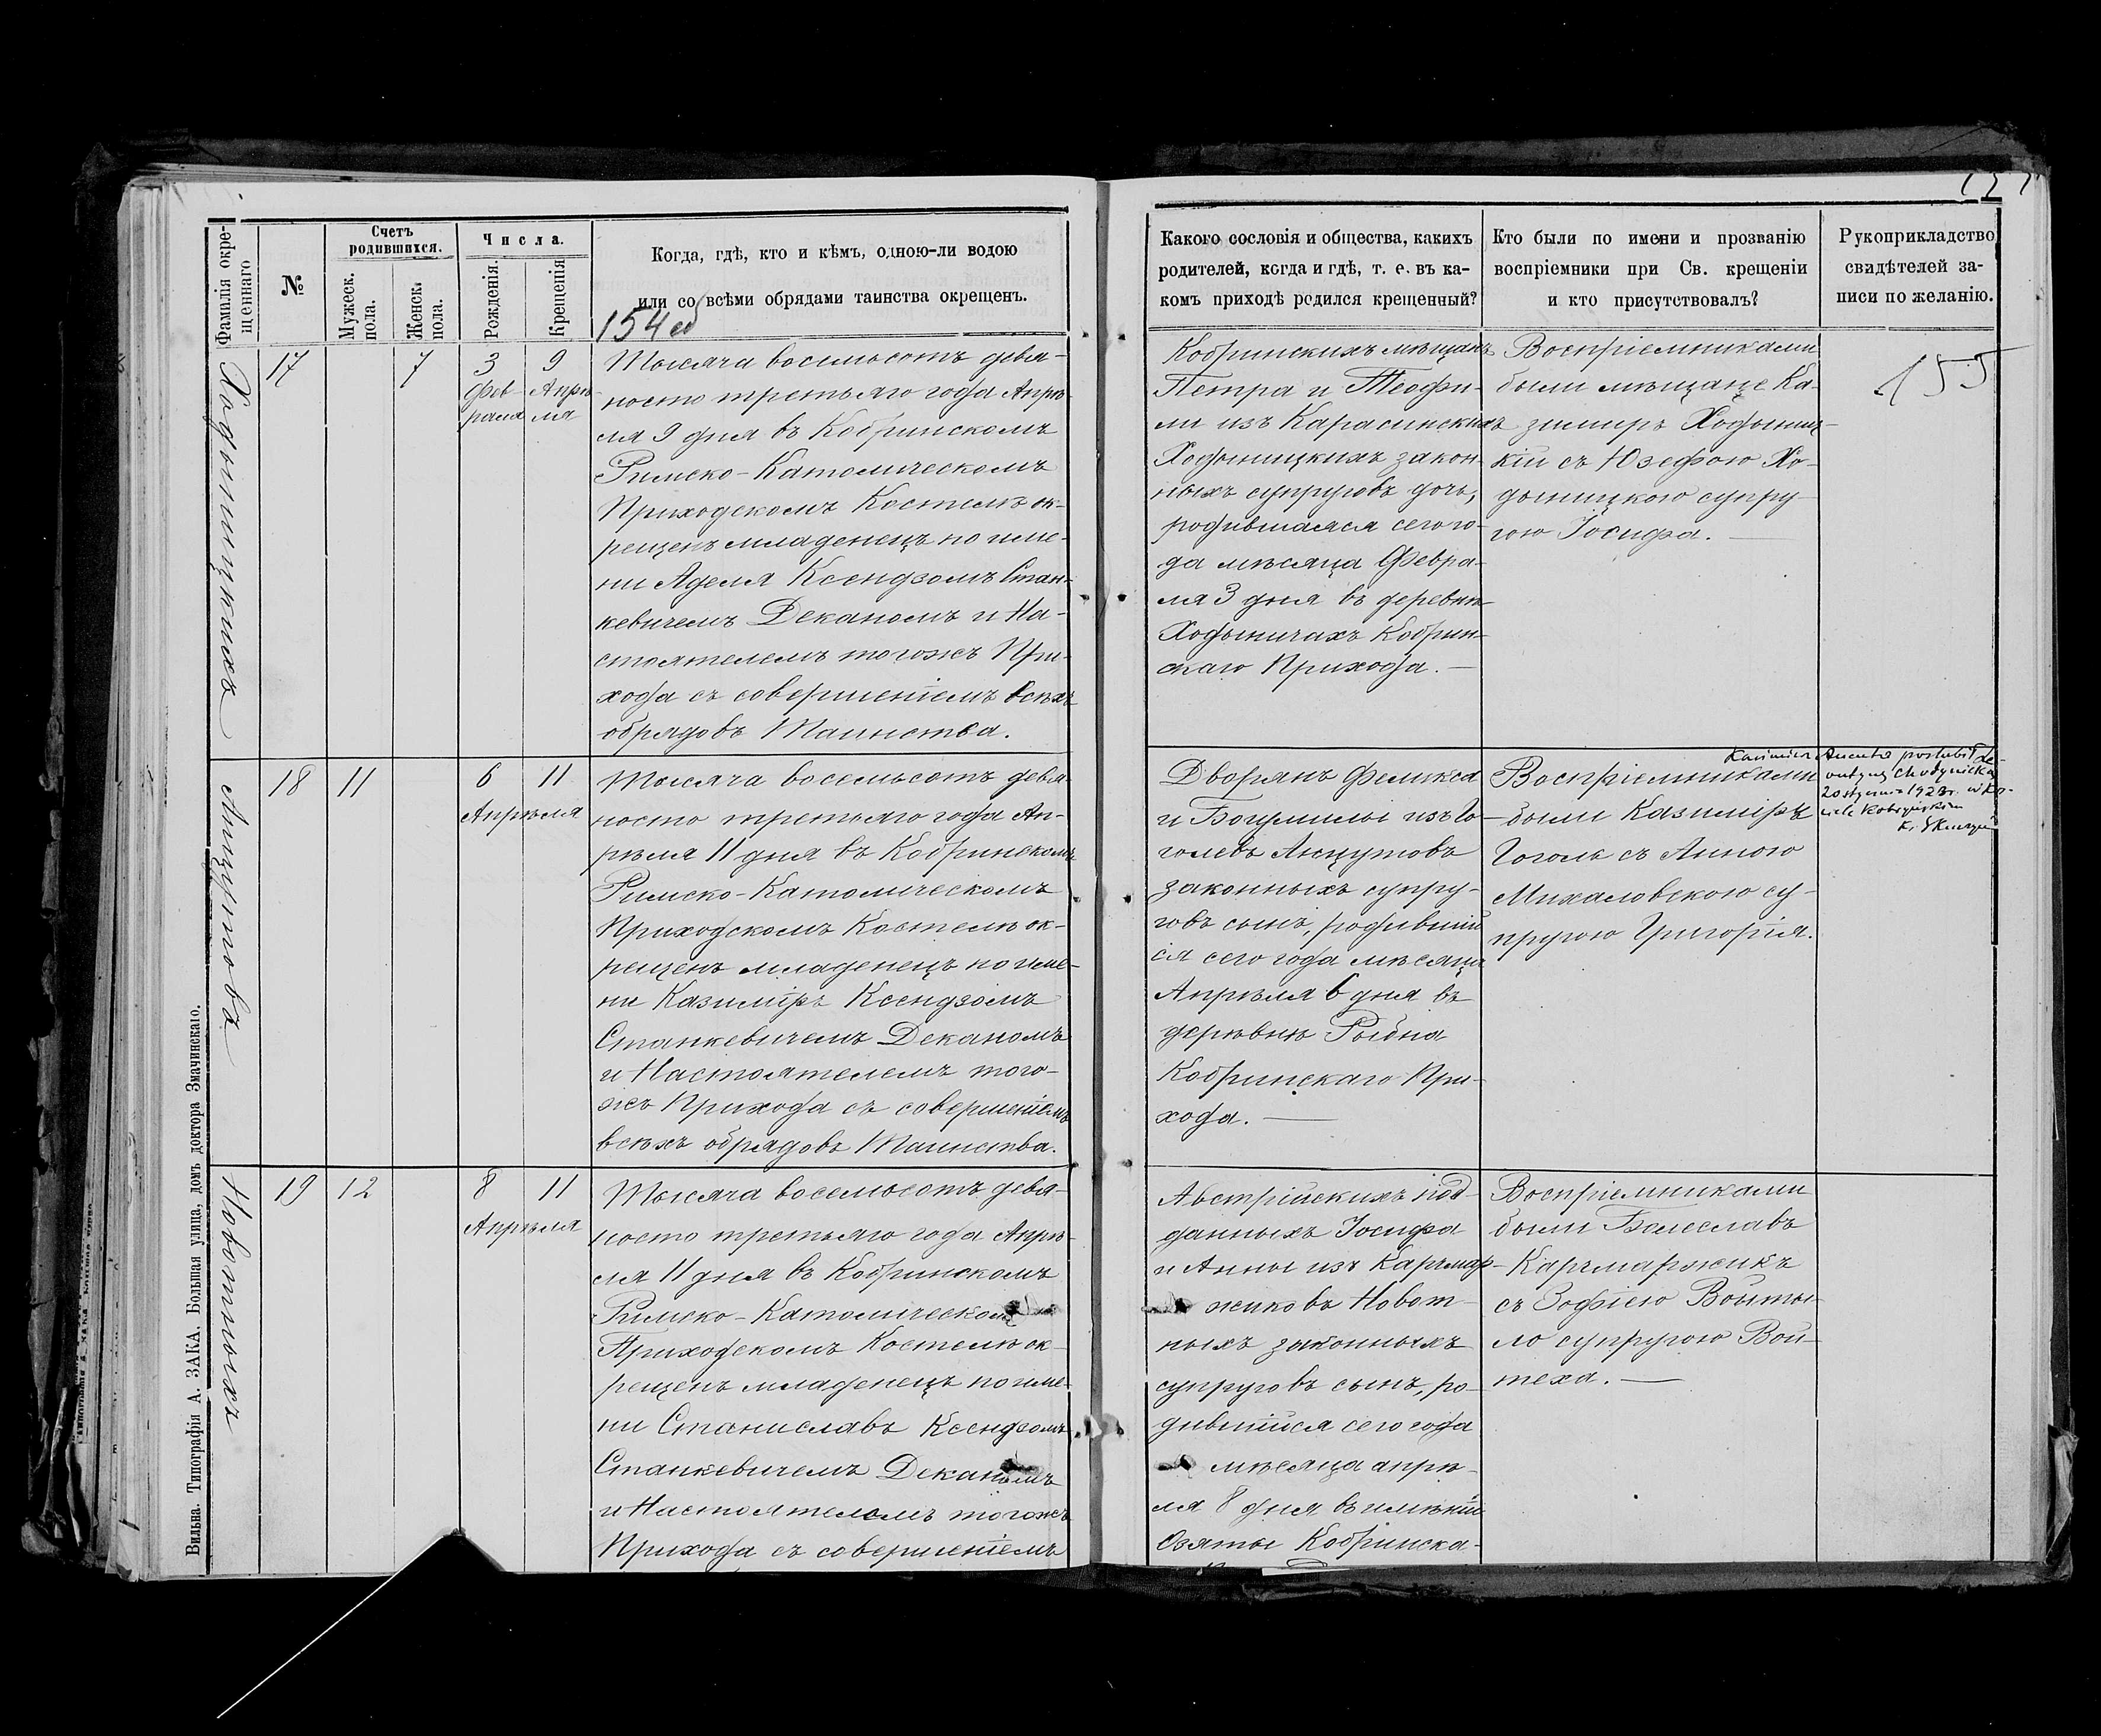 Фамилія окре-
щеннаго
№
Счетъ
родившихся.
Мужеск.
пола.
Женск.
пола.
Числа.
Рожденія.
Крещенія
Когда, гдѣ, кто и кѣмъ, одною-ли водою
или со всѣми обрядами таинства окрещенъ.
154 об
Какого сословія и общества, какихъ
родителей, когда и гдѣ, т. е. въ ка-
комъ приходѣ родился крещенный?
Кто были по имени и прозванію
воспріемники при Св. крещеніи
и кто присутствовалъ?
Рукоприкладство
свидѣтелей за-
писи по желанію.
155
Ходыницкихъ
17
7
3
Фев-
раля
9
Апрѣ-
ля
Тысяча восемьсотъ девя-
носто третьяго года Апрѣ-
ля 9 дня въ Кобринскомъ
Римско-Католическомъ
Приходскомъ Костелѣ ок-
рещенъ младенецъ по име-
ни Аделя Ксендзомъ Стан-
кевичемъ Деканомъ и На-
стоятелемъ тогожъ При-
хода съ совершеніемъ всѣхъ
обрядовъ Таинства.
Кобринскихъ мѣщанъ
Петра и Теофи-
ли изъ Карасинскихъ
Ходыницкихъ закон-
ныхъ супруговъ дочь,
родившаяся сего го-
да мѣсяца Февра-
ля 3 дня въ деревнѣ
Ходыничахъ Кобрин-
скаго Прихода.
Воспріемниками
были мѣщане Ка-
зимиръ Ходыниц-
кій съ Юзефою Хо-
дыницкою супру-
гою Іосифа.
Анцутовъ
18
11
6
11
Апрѣля
Тысяча восемьсотъ девя-
носто третьяго года Ап-
рѣля 11 дня въ Кобринскомъ
Римско-Католическомъ
Приходскомъ Костелѣ ок-
рещенъ младенецъ по име-
ни Казиміръ Ксендзомъ
Станкевичемъ Деканомъ
и Настоятелемъ того-
жъ Прихода съ совершеніемъ
всѣхъ обрядовъ Таинства.
Дворянъ Феликса
и Богумилы изъ Го-
голевъ Анцутовъ
законныхъ супру-
говъ сынъ, родившій
ся сего года мѣсяца
Апрѣля 6 дня въ
деревнѣ Рыбна
Кобринскаго При-
хода.
Воспріемниками
были Казиміръ
Гоголь съ Анною
Михаловскою су-
пругою Григорія.
Kazimierz Ancuta poślubił Le-
ontynę Chodynicką
20 stycznia 1923 r. w Ko-
ściele Kobryńskim
Новотныхъ
19
12
8
11
Апрѣля
Тысяча восемьсотъ девя-
носто третьяго года Апрѣ-
ля 11 дня въ Кобринскомъ
Римско-Католическомъ
Приходскомъ Костелѣ ок-
рещенъ младенецъ по име-
ни Станиславъ Ксендзомъ
Станкевичемъ Деканомъ
и Настоятелемъ тогожъ
Прихода съ совершеніемъ
Австрійскихъ под-
данныхъ Іосифа
и Анны изъ Карчмар-
жиковъ Новот-
ныхъ законныхъ
супруговъ сынъ, ро-
дившійся сего года
мѣсяца апрѣ-
ля 8 дня въ имѣніи
Озяты Кобринска-
Воспріемниками
были Болеславъ
Карчмаржикъ
съ Зофіею Войты-
ло супругою Вой-
теха.
Вильна. Типографія А. ЗАКА, Большая улица, домъ доктора Змачинскаго.